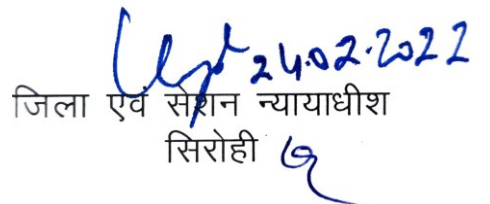 24.02.2022
जिला एवं सेशन न्यायाधीश
सिरोही